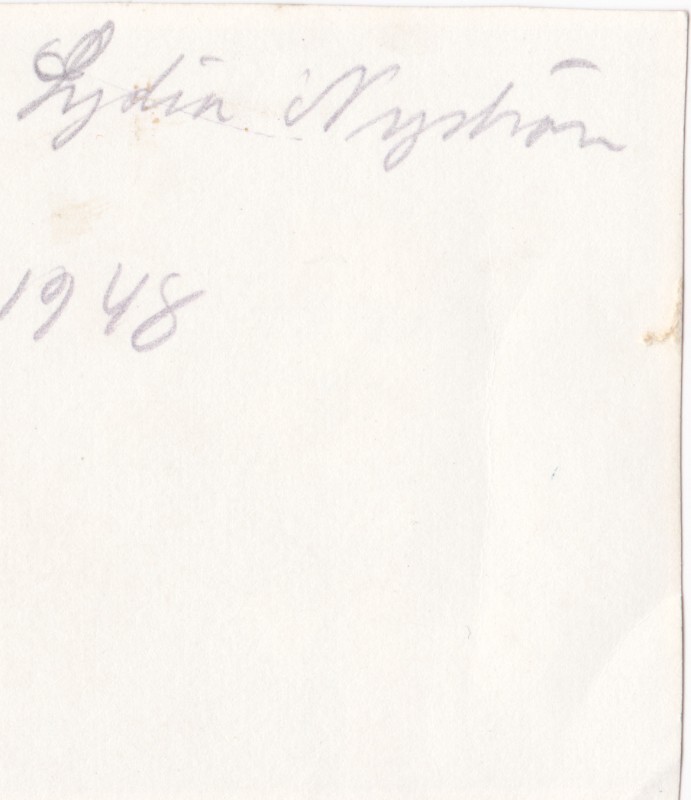 Lydia Nyström
1948